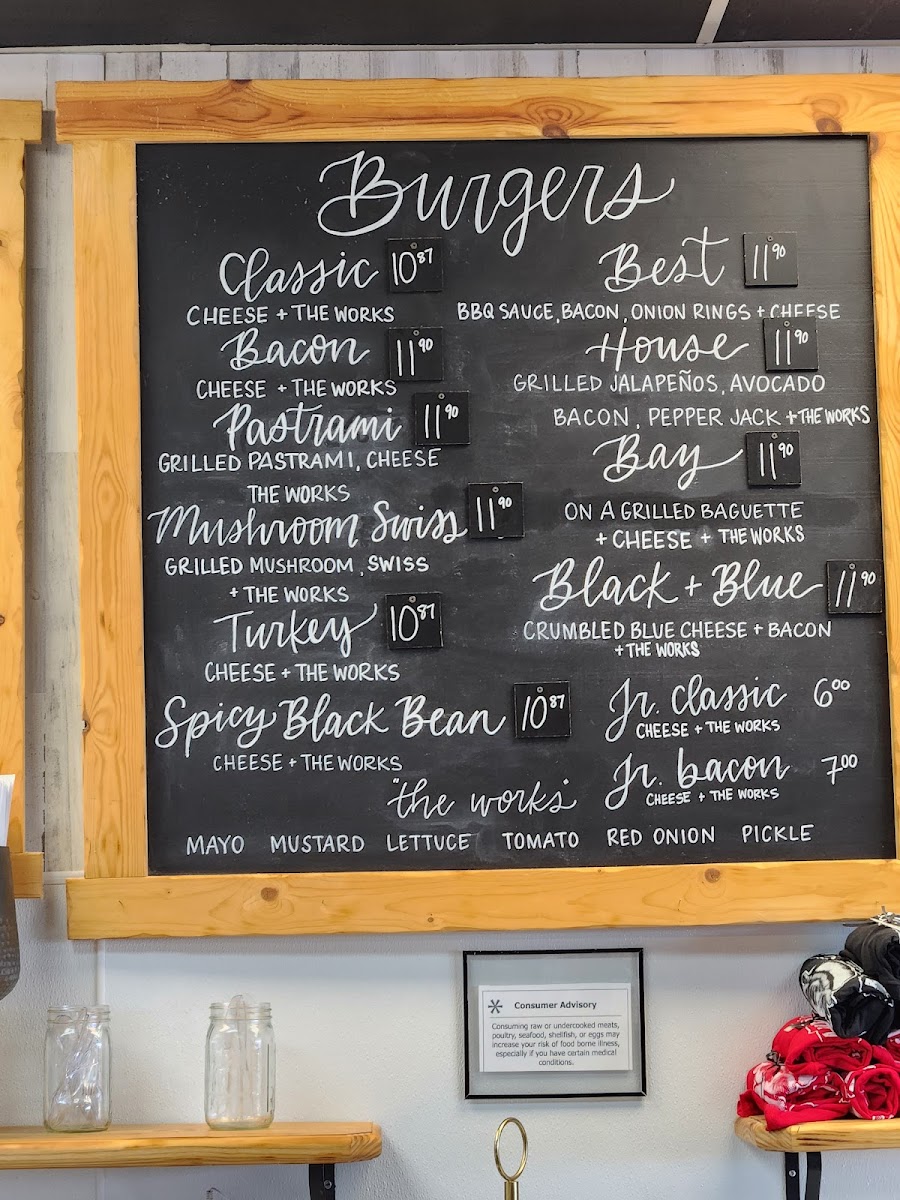 Burgers
Classic 10.87
CHEESE + THE WORKS
Bacon 11.90
CHEESE + THE WORKS
Pastrami 11.90
GRILLED PASTRAMI, CHEESE
THE WORKS
Mushroom Swiss 11.90
GRILLED MUSHROOM, SWISS
+ THE WORKS
Turkey 10.87
CHEESE + THE WORKS
Spicy Black Bean 10.87
CHEESE + THE WORKS
Best 11.90
BBQ SAUCE, BACON, ONION RINGS + CHEESE
House 11.90
GRILLED JALAPEÑOS, AVOCADO
BACON, PEPPER JACK + THE WORKS
Bay 11.90
ON A GRILLED BAGUETTE
+ CHEESE + THE WORKS
Black + Blue 11.90
CRUMBLED BLUE CHEESE + BACON
+ THE WORKS
Jr. classic 6.00
CHEESE + THE WORKS
Jr. bacon 7.00
CHEESE + THE WORKS
"the works"
MAYO MUSTARD LETTUCE TOMATO RED ONION PICKLE
* Consumer Advisory
Consuming raw or undercooked meats,
poultry, seafood, shellfish, or eggs may
increase your risk of food borne illness,
especially if you have certain medical
conditions.